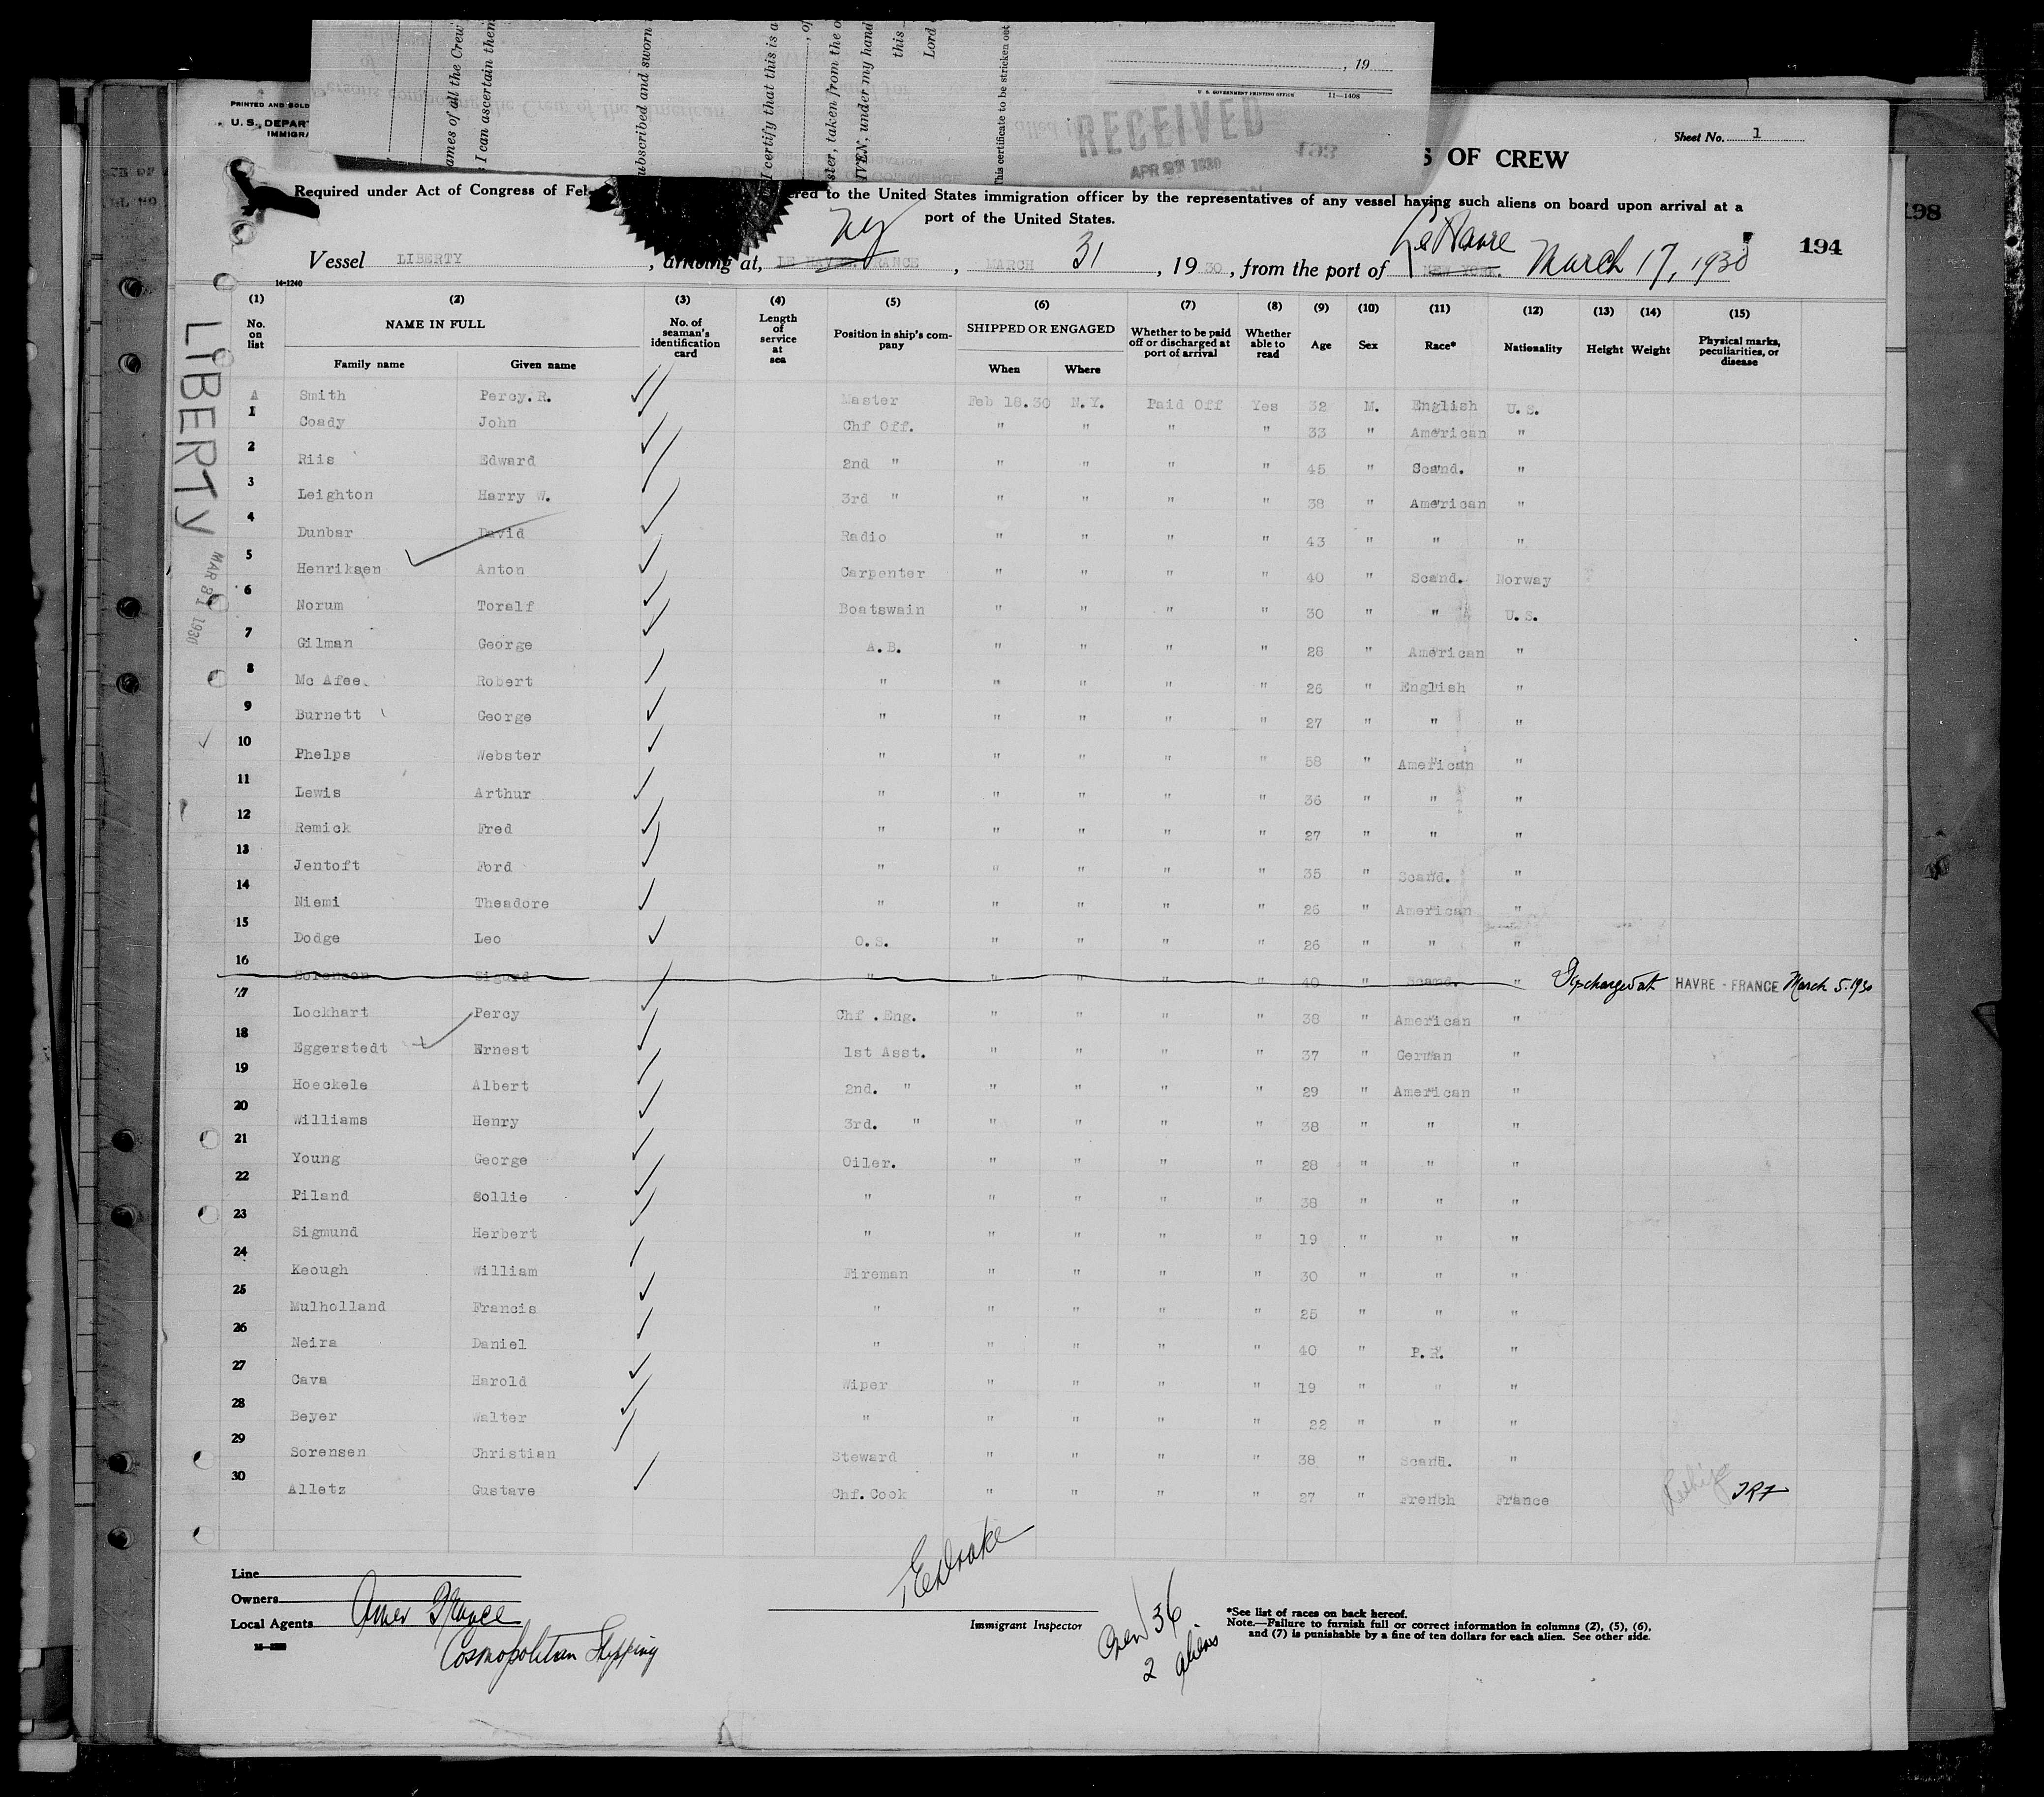 ames of all the Crew
I can ascertain them
ubscribed and sworn
I certify that this is a
ster, taken from the o
IVEN, under my hand
this
Lord
This certificate to be stricken out
, 19
U. S. GOVERNMENT PRINTING OFFICE 11—1408
RECEIVED
APR 1930
193
PRINTED AND SOLD
U. S. DEPART
IMMIGRA
Sheet No. 1
S OF CREW
Required under Act of Congress of Feb red to the United States immigration officer by the representatives of any vessel having such aliens on board upon arrival at a
port of the United States.
198
194
Vessel LIBERTY, arriving at, NY LE HAVRE FRANCE, MARCH 31, 1930, from the port of Le Havre NEW YORK. March 17, 1930
14-1240
LIBERTY
MAR 31 1930
(1) (2) (3) (4) (5) (6) (7) (8) (9) (10) (11) (12) (13) (14) (15)
No. on list NAME IN FULL Family name Given name No. of seaman's identification card Length of service at sea Position in ship's company SHIPPED OR ENGAGED When Where Whether to be paid off or discharged at port of arrival Whether able to read Age Sex Race* Nationality Height Weight Physical marks, peculiarities, or disease
A Smith Percy.R. Master Feb 18.30 N.Y. Paid Off Yes 32 M. English U.S.
1 Coady John Chf Off. " " " " 33 " American "
2 Riis Edward 2nd " " " " " 45 " Scand. "
3 Leighton Harry W. 3rd " " " " " 38 " American "
4 Dunbar David Radio " " " " 43 " " "
5 Henriksen Anton Carpenter " " " " 40 " Scand. Norway
6 Norum Toralf Boatswain " " " " 30 " " U.S.
7 Gilman George A.B. " " " " 28 " American "
8 Mc Afee. Robert " " " " " 26 " English "
9 Burnett George " " " " " 27 " " "
10 Phelps Webster " " " " " 58 " American "
11 Lewis Arthur " " " " " 36 " " "
12 Remick Fred " " " " " 27 " " "
13 Jentoft Ford " " " " " 35 " Scand. "
14 Niemi Theadore " " " " " 26 " American "
15 Dodge Leo O.S. " " " " 26 " " "
16 Sorenson Sigurd " " " " " 40 " Scand. " Discharged at HAVRE - FRANCE March 5. 1930
17 Lockhart Percy Chf .Eng. " " " " 38 " American "
18 Eggerstedt Ernest 1st Asst. " " " " 37 " German "
19 Hoeckele Albert 2nd. " " " " " 29 " American "
20 Williams Henry 3rd. " " " " " 38 " " "
21 Young George Oiler. " " " " 28 " " "
22 Piland Sollie " " " " " 38 " " "
23 Sigmund Herbert " " " " " 19 " " "
24 Keough William Fireman " " " " 30 " " "
25 Mulholland Francis " " " " " 25 " " "
26 Neira Daniel " " " " " 40 " P.R. "
27 Cava Harold Wiper " " " " 19 " " "
28 Beyer Walter " " " " " 22 " " "
29 Sorensen Christian Steward " " " " 38 " Scand. "
30 Alletz Gustave Chf.Cook " " " " 27 " French France
Line
Owners
Local Agents Amer France
Cosmopolitan Shipping
Immigrant Inspector
Crew 36
2 aliens
*See list of races on back hereof.
Note.—Failure to furnish full or correct information in columns (2), (5), (6),
and (7) is punishable by a fine of ten dollars for each alien. See other side.